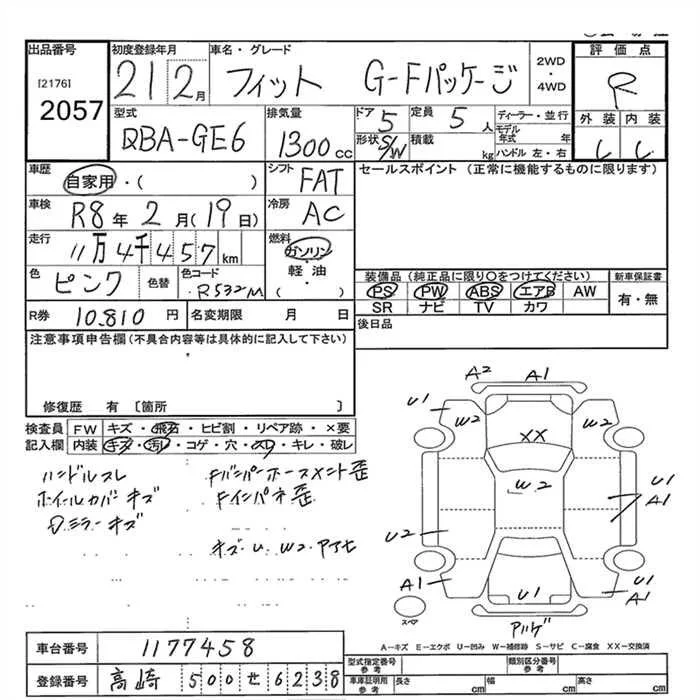 出品番号 初度登録年月 車名・グレード 2WD・4WD 評価点
[2176] 2057 21 2月 フィット G-Fパッケージ R
型式 排気量 ドア 5 定員 5人 ディーラー・並行 外装 内装
DBA-GE6 1300cc 形状 S/W 積載 kg モデル年式 年 ハンドル 左・右
車歴 シフト セールスポイント (正常に機能するものに限ります)
自家用・( ) FAT
車検 R8年2月(19日) 冷房 AC
走行 11万4千457km 燃料 ガソリン・軽油( )
色 ピンク 色替 色コード R532M
装備品 (純正品に限り〇をつけてください) 新車保証書
PS PW ABS エアB AW 有・無
SR ナビ TV カワ
R券 10,810円 名変期限 月 日 後日品
注意事項申告欄(不具合内容等は具体的に記入して下さい)
修復歴 有〔箇所 〕
検査員記入欄 FW キズ・飛石・ヒビ割・リペア跡・×要
内装 キズ・汚レ・コゲ・穴・スレ・キレ・破レ
ハンドルスレ
ホイールカバーキズ
Dミラーキズ
Fバンパーホースメント歪
Fインパネ歪
キズ・U W2 アリ
A2 A1
U1 W2 W2 U1
XX
W2
U1 A1
U2
A1 U1 U1 A1
スペア
A-キズ E-エクボ U-凹み W-補修跡 S-サビ C-腐食 XX-交換済
車台番号 1177458
登録番号 高崎 500 せ 6238
型式指定番号 参考 類別区分番号 参考
車庫証明用 参考 長さ cm 幅 cm 高さ cm